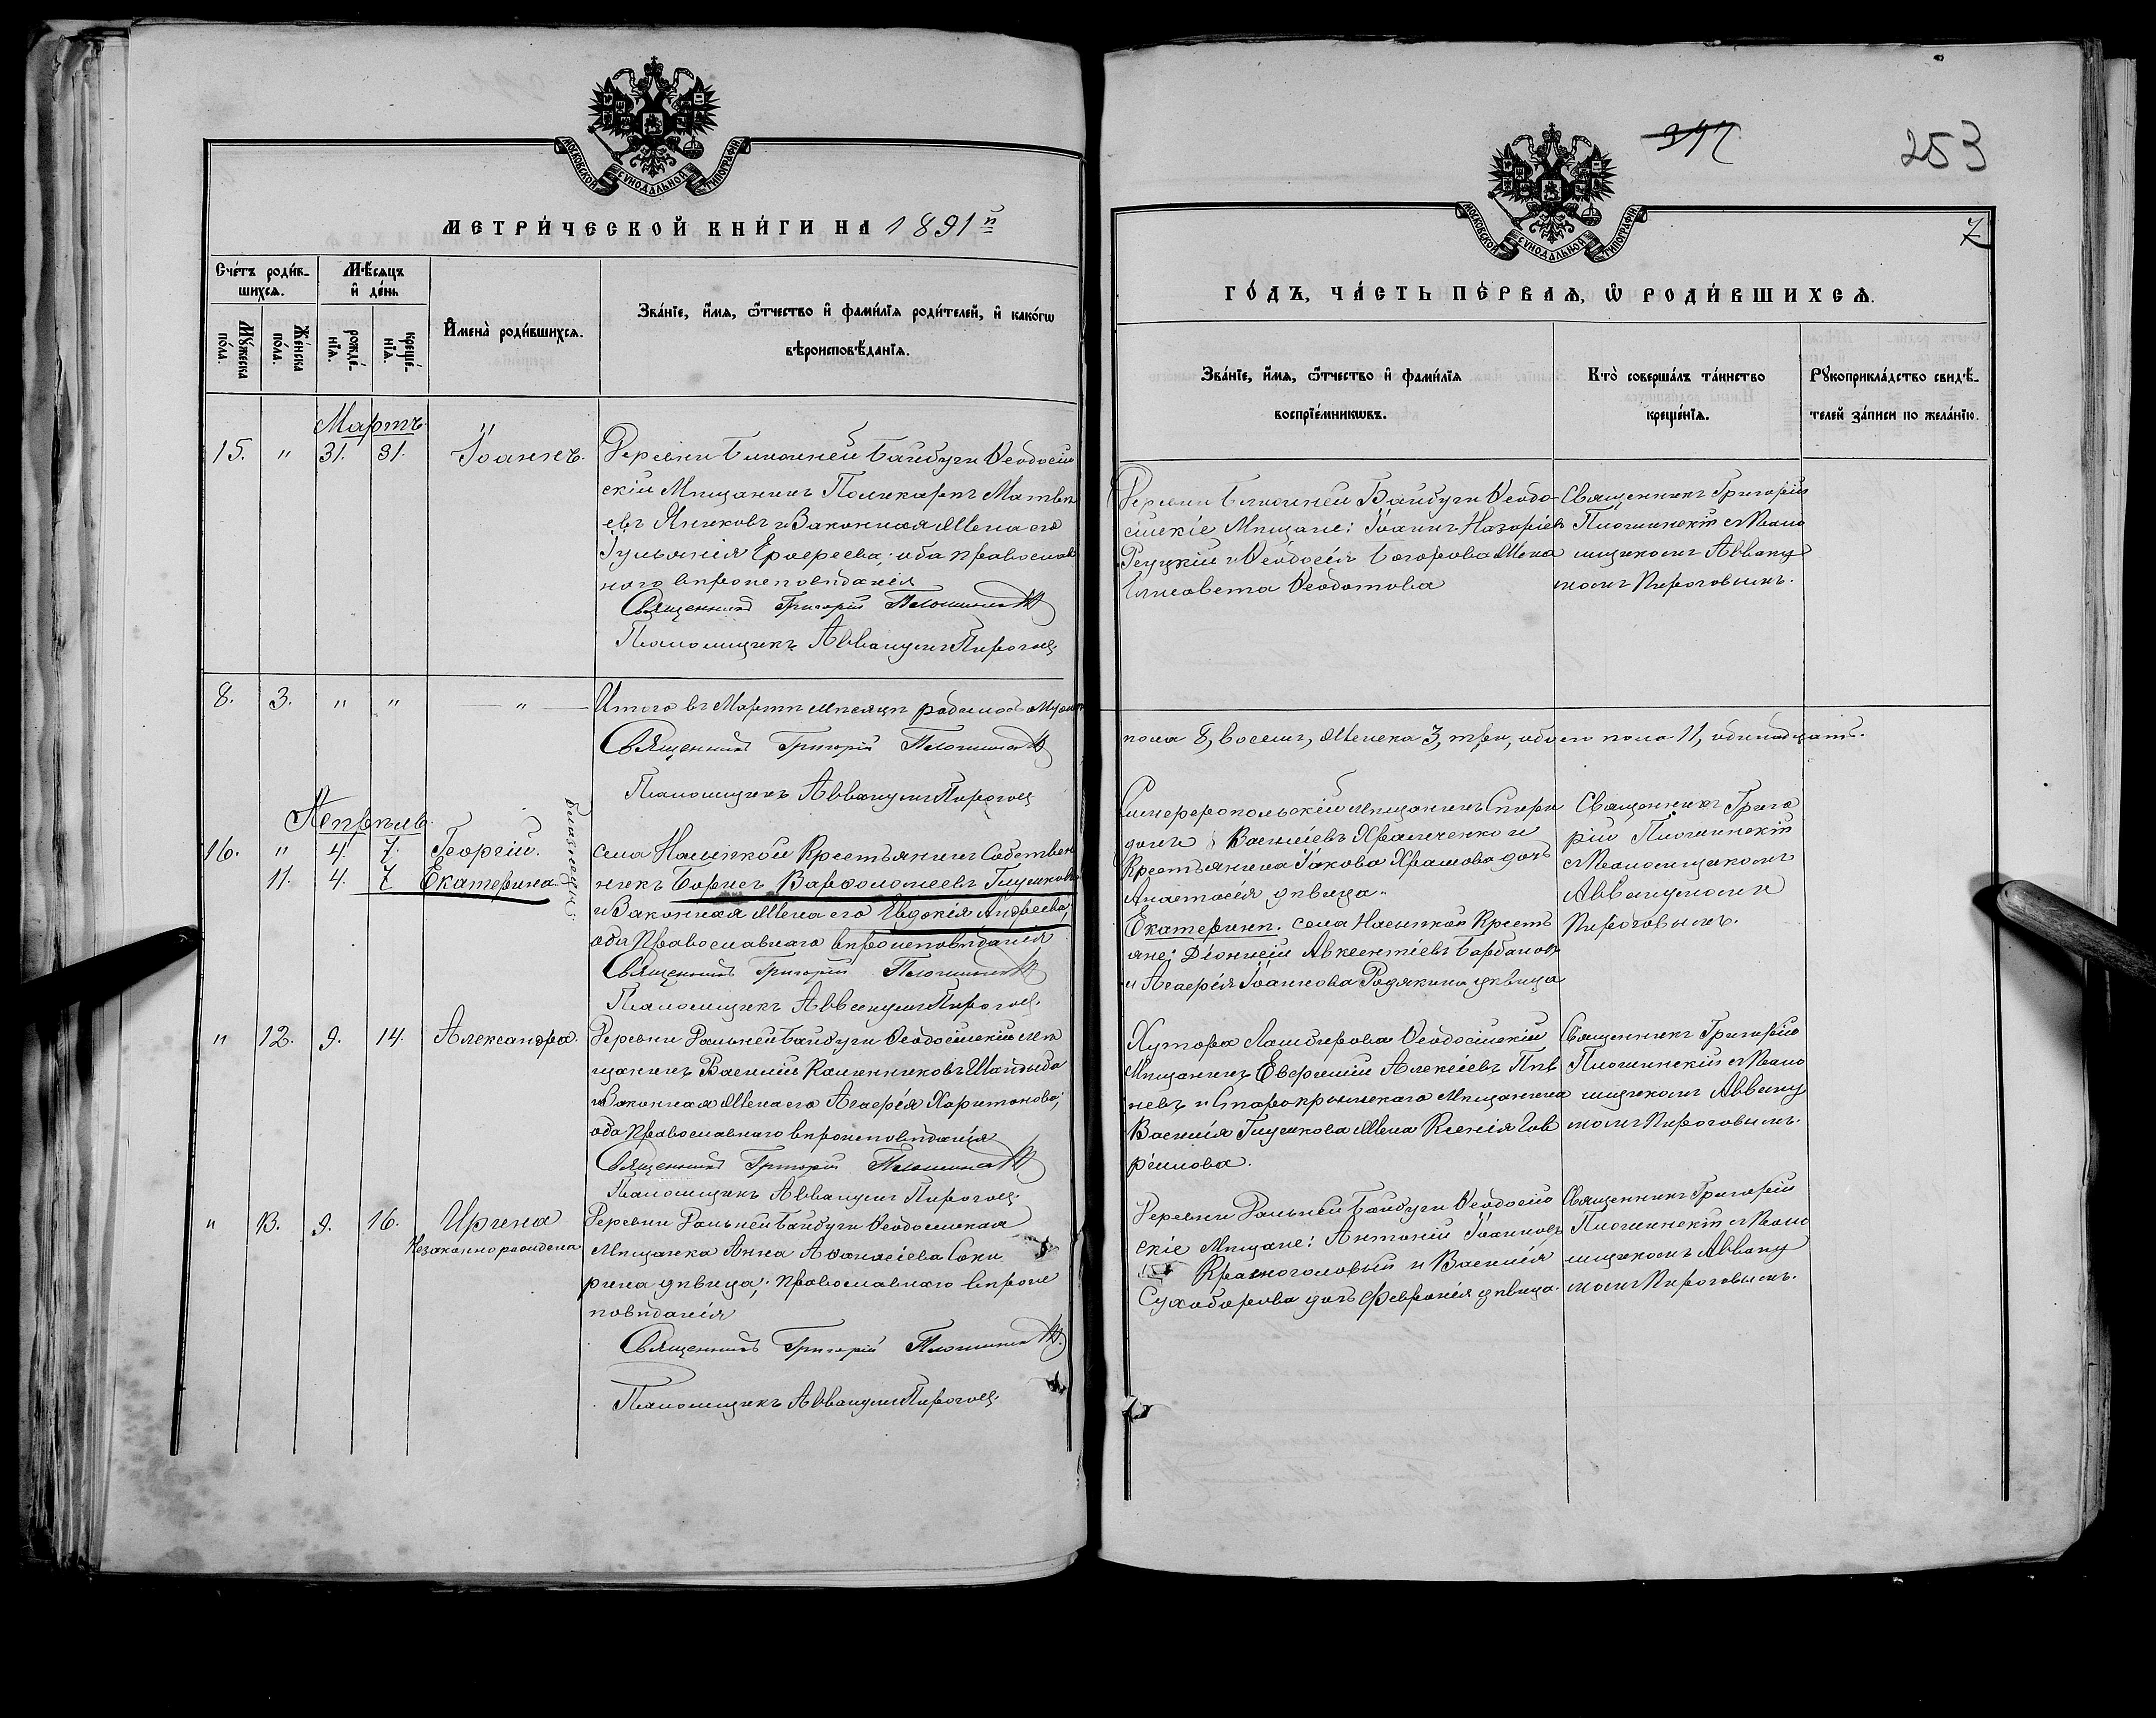 МОСКОВСКОЙ СѴНОДАЛЬНОЙ ТИПОГРАФІИ
МЕТРИ́ЧЕСКОЙ КНИ́ГИ НА 1891й
Сче́тъ роди́в-
шихсѧ.
Мѣ́сѧцъ
и҆ де́нь
Мꙋ́жеска
по́ла.
Же́нска
по́ла.
рожде́-
нїѧ.
креще́-
нїѧ.
И҆мена̀ роди́вшихсѧ.
Зва́нїе, и҆́мѧ, ѻ҆́тчество и҆ фами́лїѧ роди́телей, и҆ како́гѡ
вѣроисповѣ́данїѧ.
Мартъ.
15. " 31. 31. Іоаннъ.
Деревни Ближней Байбуги Ѳеодосій
скій Мѣщанинъ Поликарпъ Матвѣ
евъ Янчковъ и Законная Жена его
Іульянія Ерофеева; оба православ
ного вѣроисповѣданія
Священникъ Григорій
Псаломщикъ Аввакумъ Пироговъ
8. 3. " " "
Итого въ Мартѣ мѣсяцѣ родилось Мужеск
Священникъ Григорій
Псаломщикъ Аввакумъ Пироговъ
Апрѣль.
16. " 4. 7. Георгій.
11. 4. 7 Екатерина
Близнецы.
села Насыпкой Крестьянинъ Собствен
никъ Борисъ Варѳоломеевъ Глушковъ
и Законная Жена его Евдокія Андреева,
оба Православнаго вѣроисповѣданія
Священникъ Григорій
Псаломщикъ Аввакумъ Пироговъ
" 12. 9. 14. Александра.
Деревни Дальней Байбуги Ѳеодосійскій Мѣ
щанинъ Василій Калинниковъ Шайдыда
и Законная Жена его Агафія Харитонова;
оба Православнаго вѣроисповѣданія
Священникъ Григорій
Псаломщикъ Аввакумъ Пироговъ
" 13. 9. 16. Ирина
Незаконнорожденна
Деревни Дальней Байбуги Ѳеодосійская
Мѣщанка Анна Аѳанасіева Соки
рина дѣвица; Православнаго вѣроис
повѣданія
Священникъ Григорій
Псаломщикъ Аввакумъ Пироговъ
397
253
7
МОСКОВСКОЙ СѴНОДАЛЬНОЙ ТИПОГРАФІИ
ГО́ДЪ, ЧА́СТЬ ПЕ́РВАѦ, Ѡ҆ РОДИ́ВШИХСѦ.
Зва́нїе, и҆́мѧ, ѻ҆́тчество и҆ фами́лїѧ
воспрїе́мникѡвъ.
Кто̀ соверша́лъ та́инство
креще́нїѧ.
Рꙋкоприкла́дство свидѣ́-
телей за́писи по жела́нїю.
Деревни Ближней Байбуги Ѳеодо-
сійскіе Мѣщане: Іоаннъ Назаріев
Рецкій и Ѳеодосія Егорова Жена
Елисавета Ѳеодотова
Священникъ Григорій
Плошинскій съ Псало
мщикомъ Авваку
момъ Пироговымъ.
пола 8, восемь, Женска 3, три, обоего пола 11, одинадцать.
Симферопольскій мѣщанинъ Спири
донъ Василіевъ Храмченко и
Крестьянина Іакова Храмова дочь
Анастасія дѣвица.
Екатерины. села Насыпкой Кресть
яне: Діонисій Авксентіевъ Барбановъ
и Агафія Іоаннова Родякина дѣвица
Священникъ Григо
рій Плошинскій
съ Псаломщикомъ
Аввакумомъ
Пироговымъ.
Хутора Ламбирова Ѳеодосійскій
Мѣщанинъ Евфимій Алексіевъ Пив
невъ и Старокрымскаго Мѣщанина
Василія Глушкова Жена Ксенія Гав
ріилова.
Священникъ Григорій
Плошинскій съ Псало
мщикомъ Авваку
момъ Пироговымъ.
Деревни Дальней Байбуги Ѳеодосій
скіе Мѣщане: Антоній Іоанновъ
Красноголовый и Василія
Сухоборова дочь Февронія дѣвица.
Священникъ Григорій
Плошинскій съ Псало
мщикомъ Авваку
момъ Пироговымъ.